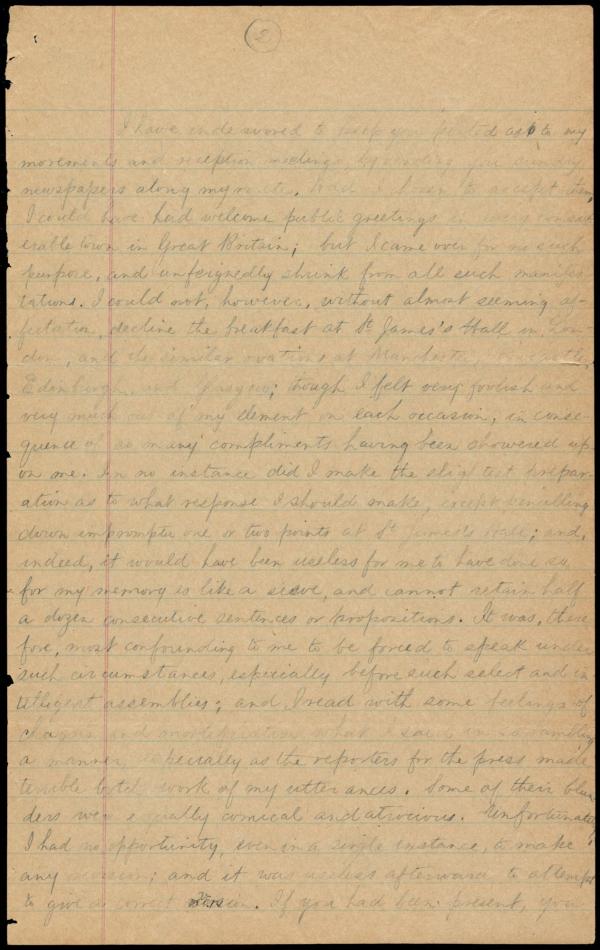 2
I have endeavored to keep you posted as to my
movements and reception meetings, by sending you sundry
newspapers along my route. Had I chosen to accept them,
I could have had welcome public greetings in every consid-
erable town in Great Britain; but I came over for no such
purpose, and unfeignedly shrunk from all such manifes-
tations. I could not, however, without almost seeming af-
fectation, decline the breakfast at St James's Hall in Lon-
don, and the similar ovations at Manchester, Newcastle,
Edinburgh, and Glasgow; though I felt very foolish and
very much out of my element on each occasion, in conse-
quence of so many compliments having been showered up-
on me. In no instance did I make the slightest prepar-
ation as to what response I should make, except pencilling
down impromptu one or two points at St James's Hall; and,
indeed, it would have been useless for me to have done so,
for my memory is like a sieve, and cannot retain half
a dozen consecutive sentences or propositions. It was, there-
fore, most confounding to me to be forced to speak under
such circumstances, especially before such select and in-
telligent assemblies; and I read with some feelings of
chagrin and mortification what I said in so rambling
a manner, especially as the reporters for the press made
terrible botch work of my utterances. Some of their blun-
ders were equally comical and atrocious. Unfortunately,
I had no opportunity, even in a single instance, to make
any revision; and it was useless afterward to attempt
to give a correct version. If you had been present, you